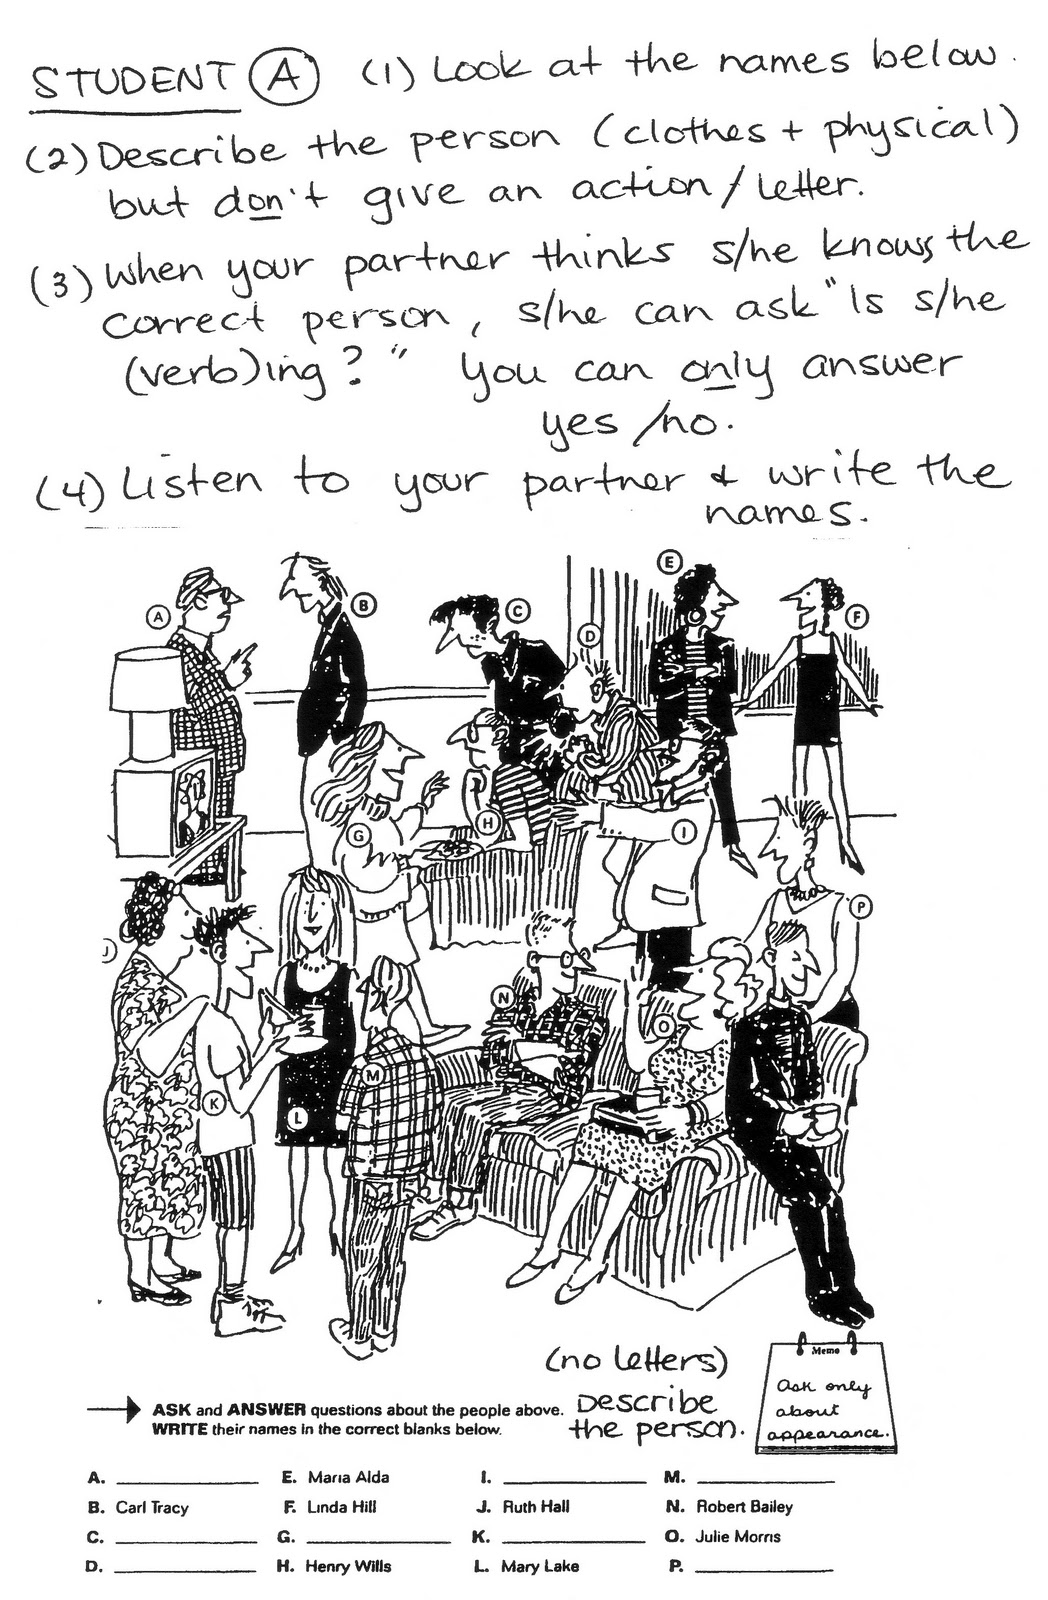 STUDENT A (1) Look at the names below.
(2) Describe the person (clothes + physical)
but don't give an action / letter.
(3) When your partner thinks s/he knows the
correct person, s/he can ask "Is s/he
(verb)ing?" You can only answer
yes/no.
(4) Listen to your partner & write the
names.
E
A
B
C
F
D
G
H
I
P
J
N
O
K
M
L
(no letters)
Describe
the person.
Memo
Ask only
about
appearance.
ASK and ANSWER questions about the people above.
WRITE their names in the correct blanks below.
A. ____ E. Maria Alda I. ____ M. ____
B. Carl Tracy F. Linda Hill J. Ruth Hall N. Robert Bailey
C. ____ G. ____ K. ____ O. Julie Morris
D. ____ H. Henry Wills L. Mary Lake P. ____